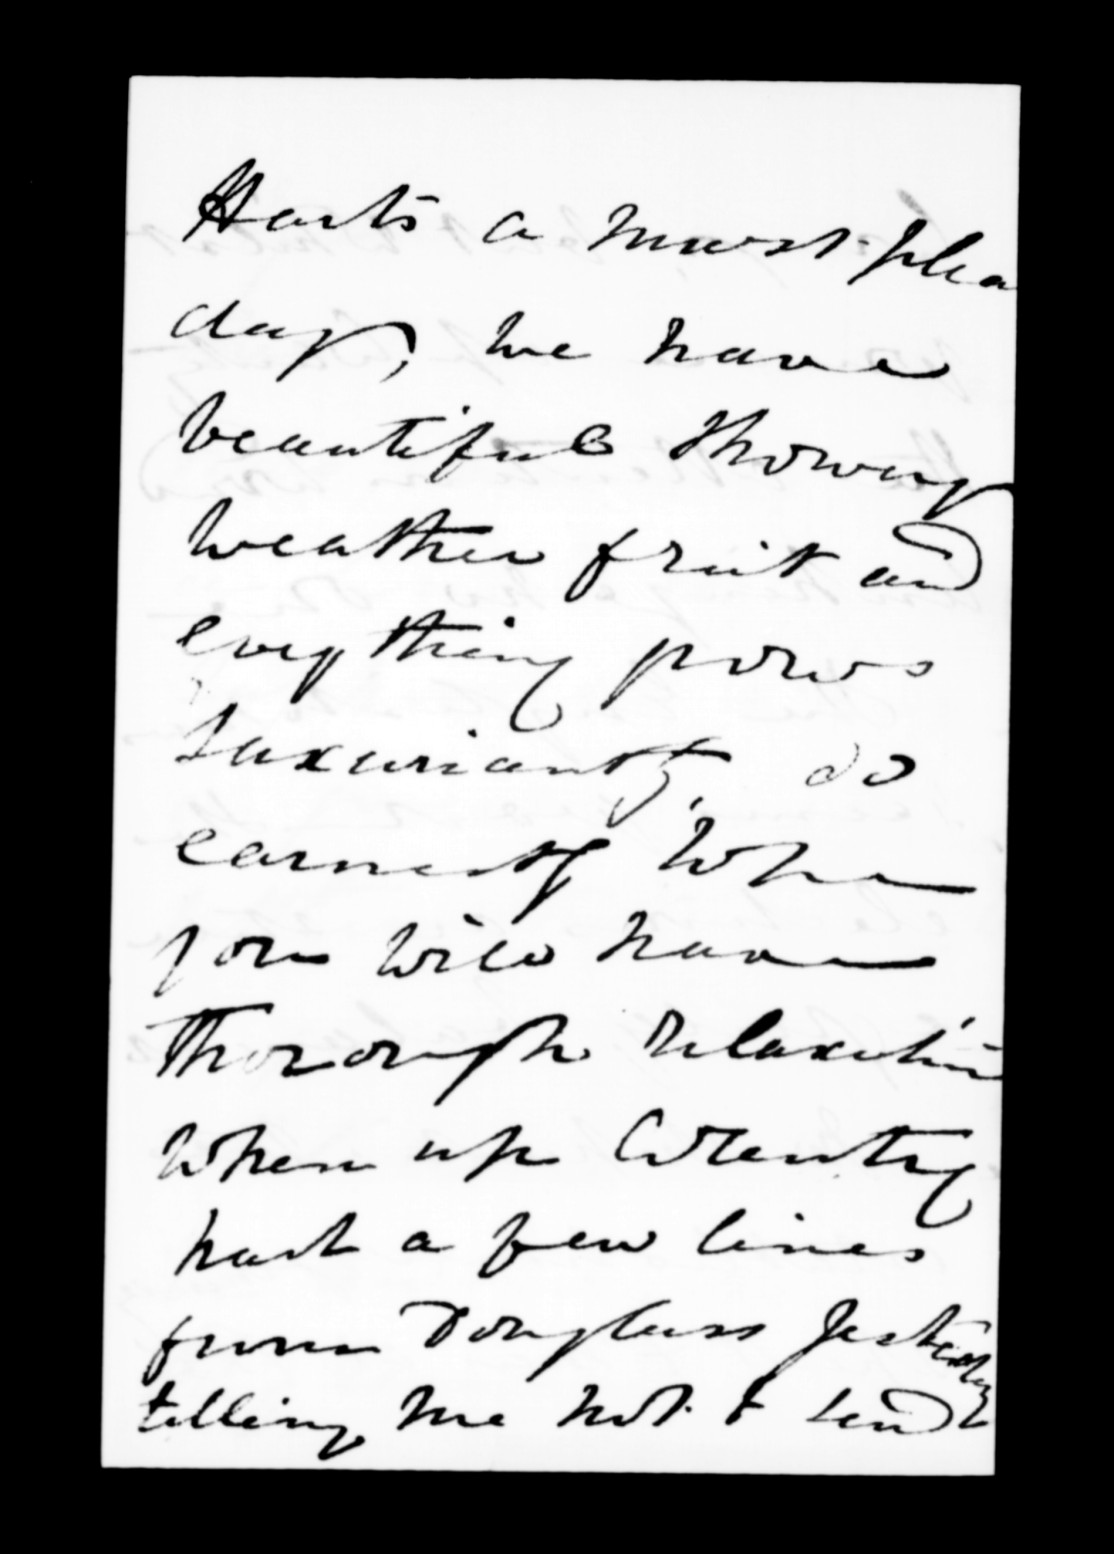 Harts a most plea
day, we have
beautiful showery
weather fruit and
everything grows
luxuriantly, do
earnestly hope
you will have
thorough relaxation
when up Country
had a few lines
from Douglass yesterday
telling me not to send